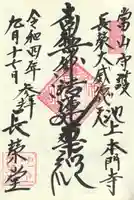 当山守護
長榮大威徳天
池上本門寺
南無妙法蓮華経
令和四年
九月十七日 参拝
長榮堂